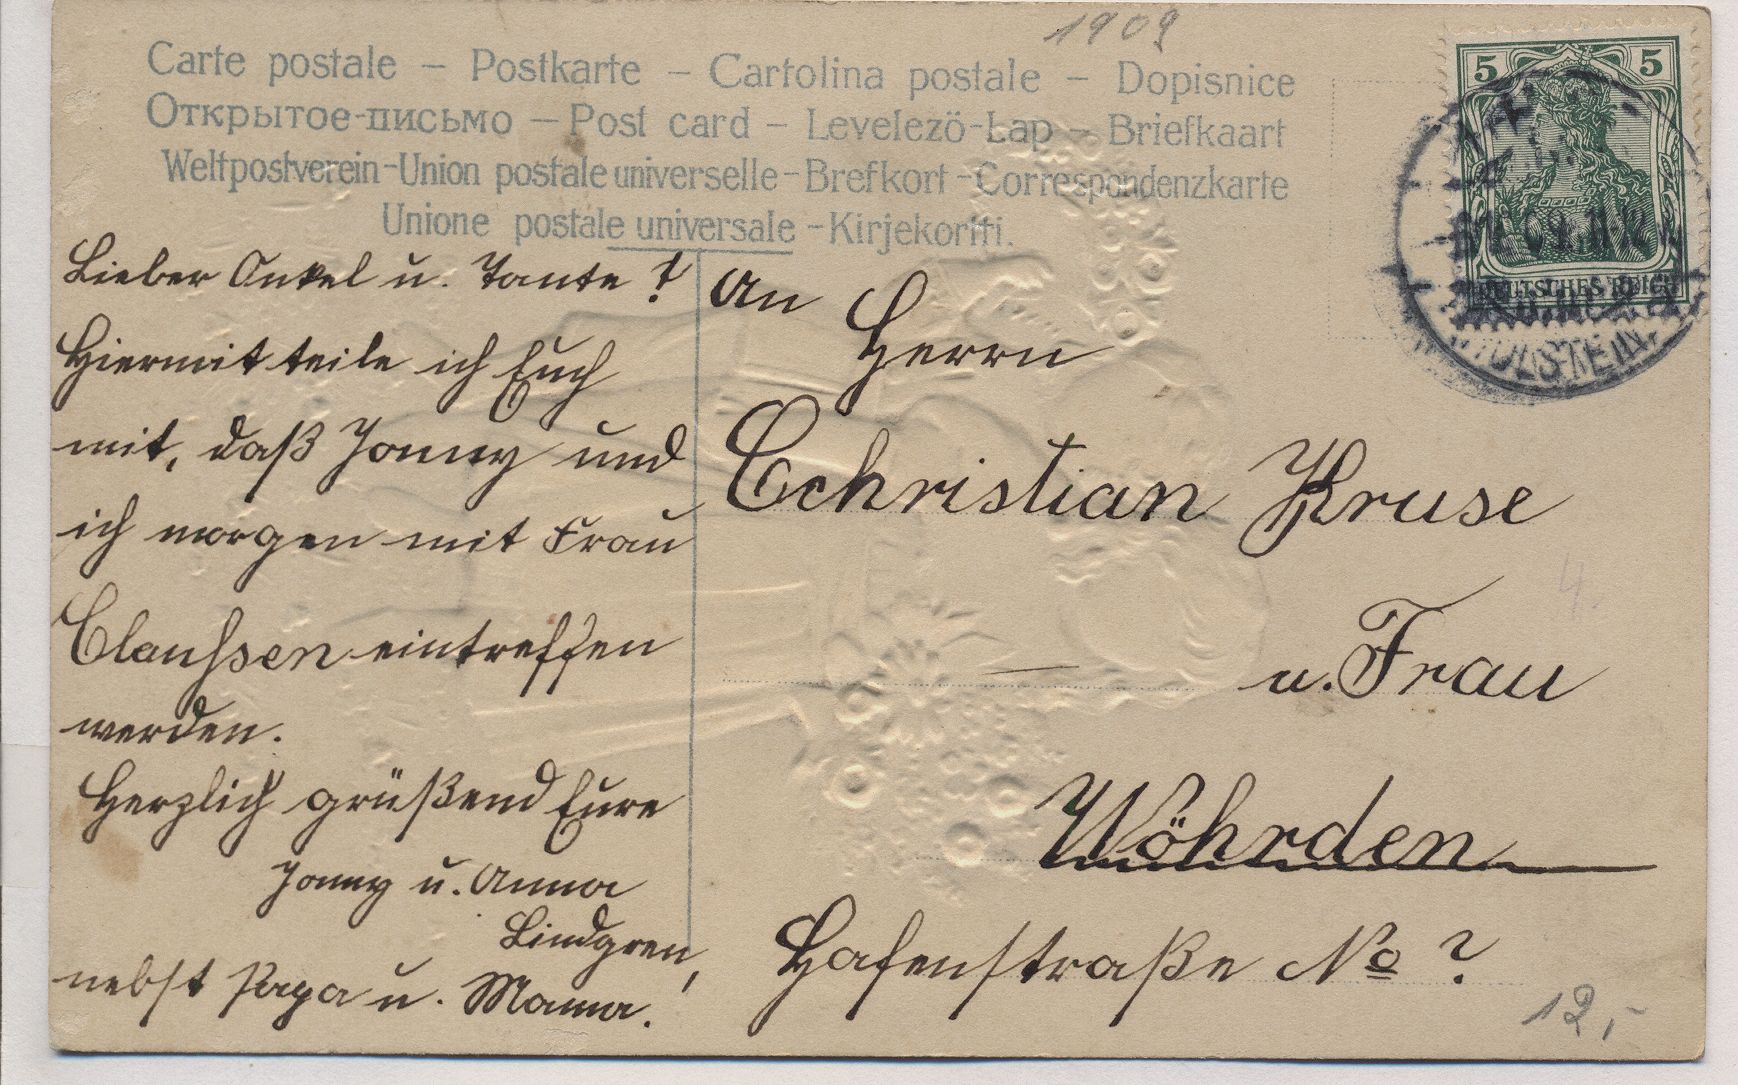 1909
Carte postale – Postkarte – Cartolina postale – Dopisnice
Открытое-письмо – Post card – Levelezö-Lap – Briefkaart
Weltpostverein-Union postale universelle-Brefkort-Correspondenzkarte
Unione postale universale-Kirjekortti.
5 5
DEUTSCHES REICH
HOLSTEIN
Lieber Onkel u. Tante!
Hiermit teile ich Euch
mit, daß Jonny und
ich morgen mit Frau
Claußsen eintreffen
werden.
Herzlich grüßend Eure
Jonny u. Anna
Lindgren,
nebst Papa u. Mama.
An
Herrn
Cchristian Kruse
u. Frau
Wöhrden
Hafenstraße No ?
4.
12,-